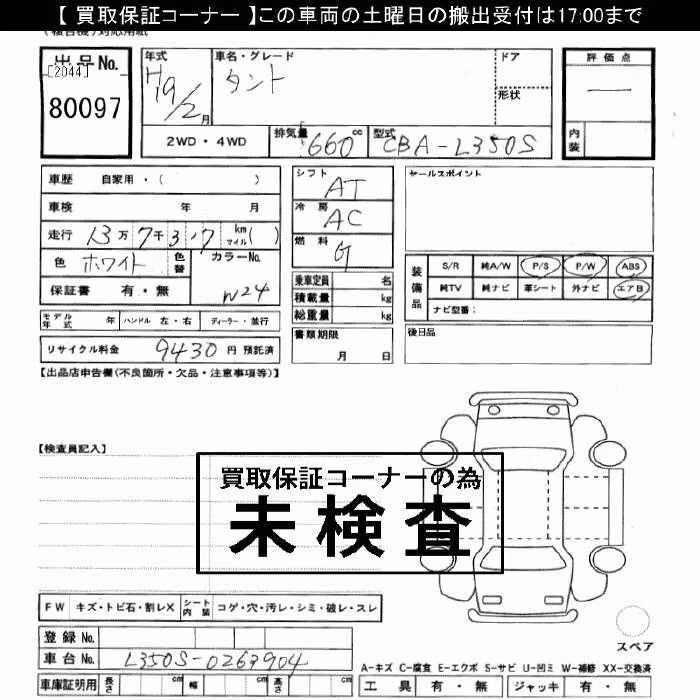 【 買取保証コーナー 】この車両の土曜日の搬出受付は17:00まで
出品No.
[2044]
80097
年式
H19/2月
車名・グレード
タント
ドア
形状
評価点
—
内装
2WD・4WD
排気量 660 cc
型式 CBA-L350S
車歴 自家用・( )
車検 年 月
走行 13万7千3,7 km マイル( )
色 ホワイト
色替
カラーNo.
W24
保証書 有・無
シフト AT
冷房 AC
燃料 G
乗車定員 名
積載量 kg
総重量 kg
セールスポイント
装備品
S/R 純A/W P/S P/W ABS
純TV 純ナビ 革シート 外ナビ エアB
ナビ型番:
モデル年式 年 ハンドル 左・右 ディーラー・並行
書類期限
月 日
後日品
リサイクル料金 9430 円 預託済
【出品店申告欄(不良箇所・欠品・注意事項等)】
【検査員記入】
買取保証コーナーの為
未検査
FW キズ・トビ石・割レX シート内装 コゲ・穴・汚レ・シミ・破レ・スレ
スペア
登録 No.
車台 No. L350S-0263904
A-キズ C-腐食 E-エクボ S-サビ U-凹ミ W-補修 XX-交換済
車庫証明用 長さ cm 幅 cm 高さ cm
工具 有・無 ジャッキ 有・無